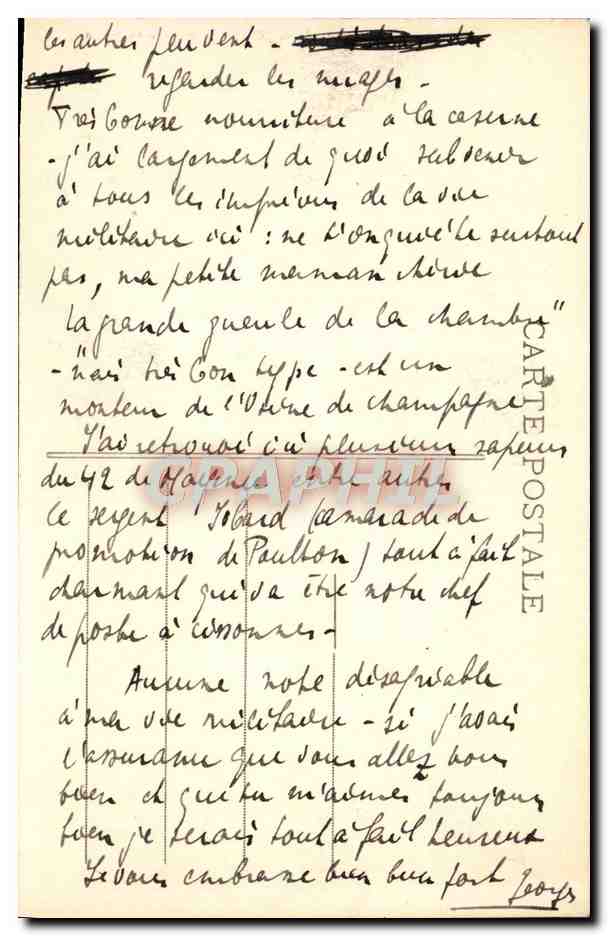 les autres peuvent -
regarder les nuages -
Très bonne nourriture à la caserne
- j'ai largement de quoi subvenir
à tous les imprévus de la vie
militaire ici : ne t'inquiète surtout
pas, ma petite maman chérie
"La grande gueule de la chambre"
- mais très bon type - est un
monteur de l'Usine de champagne
J'ai retrouvé ici plusieurs sapeurs
du 42 de Mayence entre autres
le sergent (camarade de
promotion de Poulton) tout à fait
charmant qui va être notre chef
de poste à cissonnes -
Aucune note désagréable
à ma vie militaire - si j'avais
l'assurance que vous allez tous
bien et que tu m'aimes toujours
bien je serais tout à fait heureux
Je vous embrasse bien bien fort Georges
CARTE POSTALE
CPAPHIL